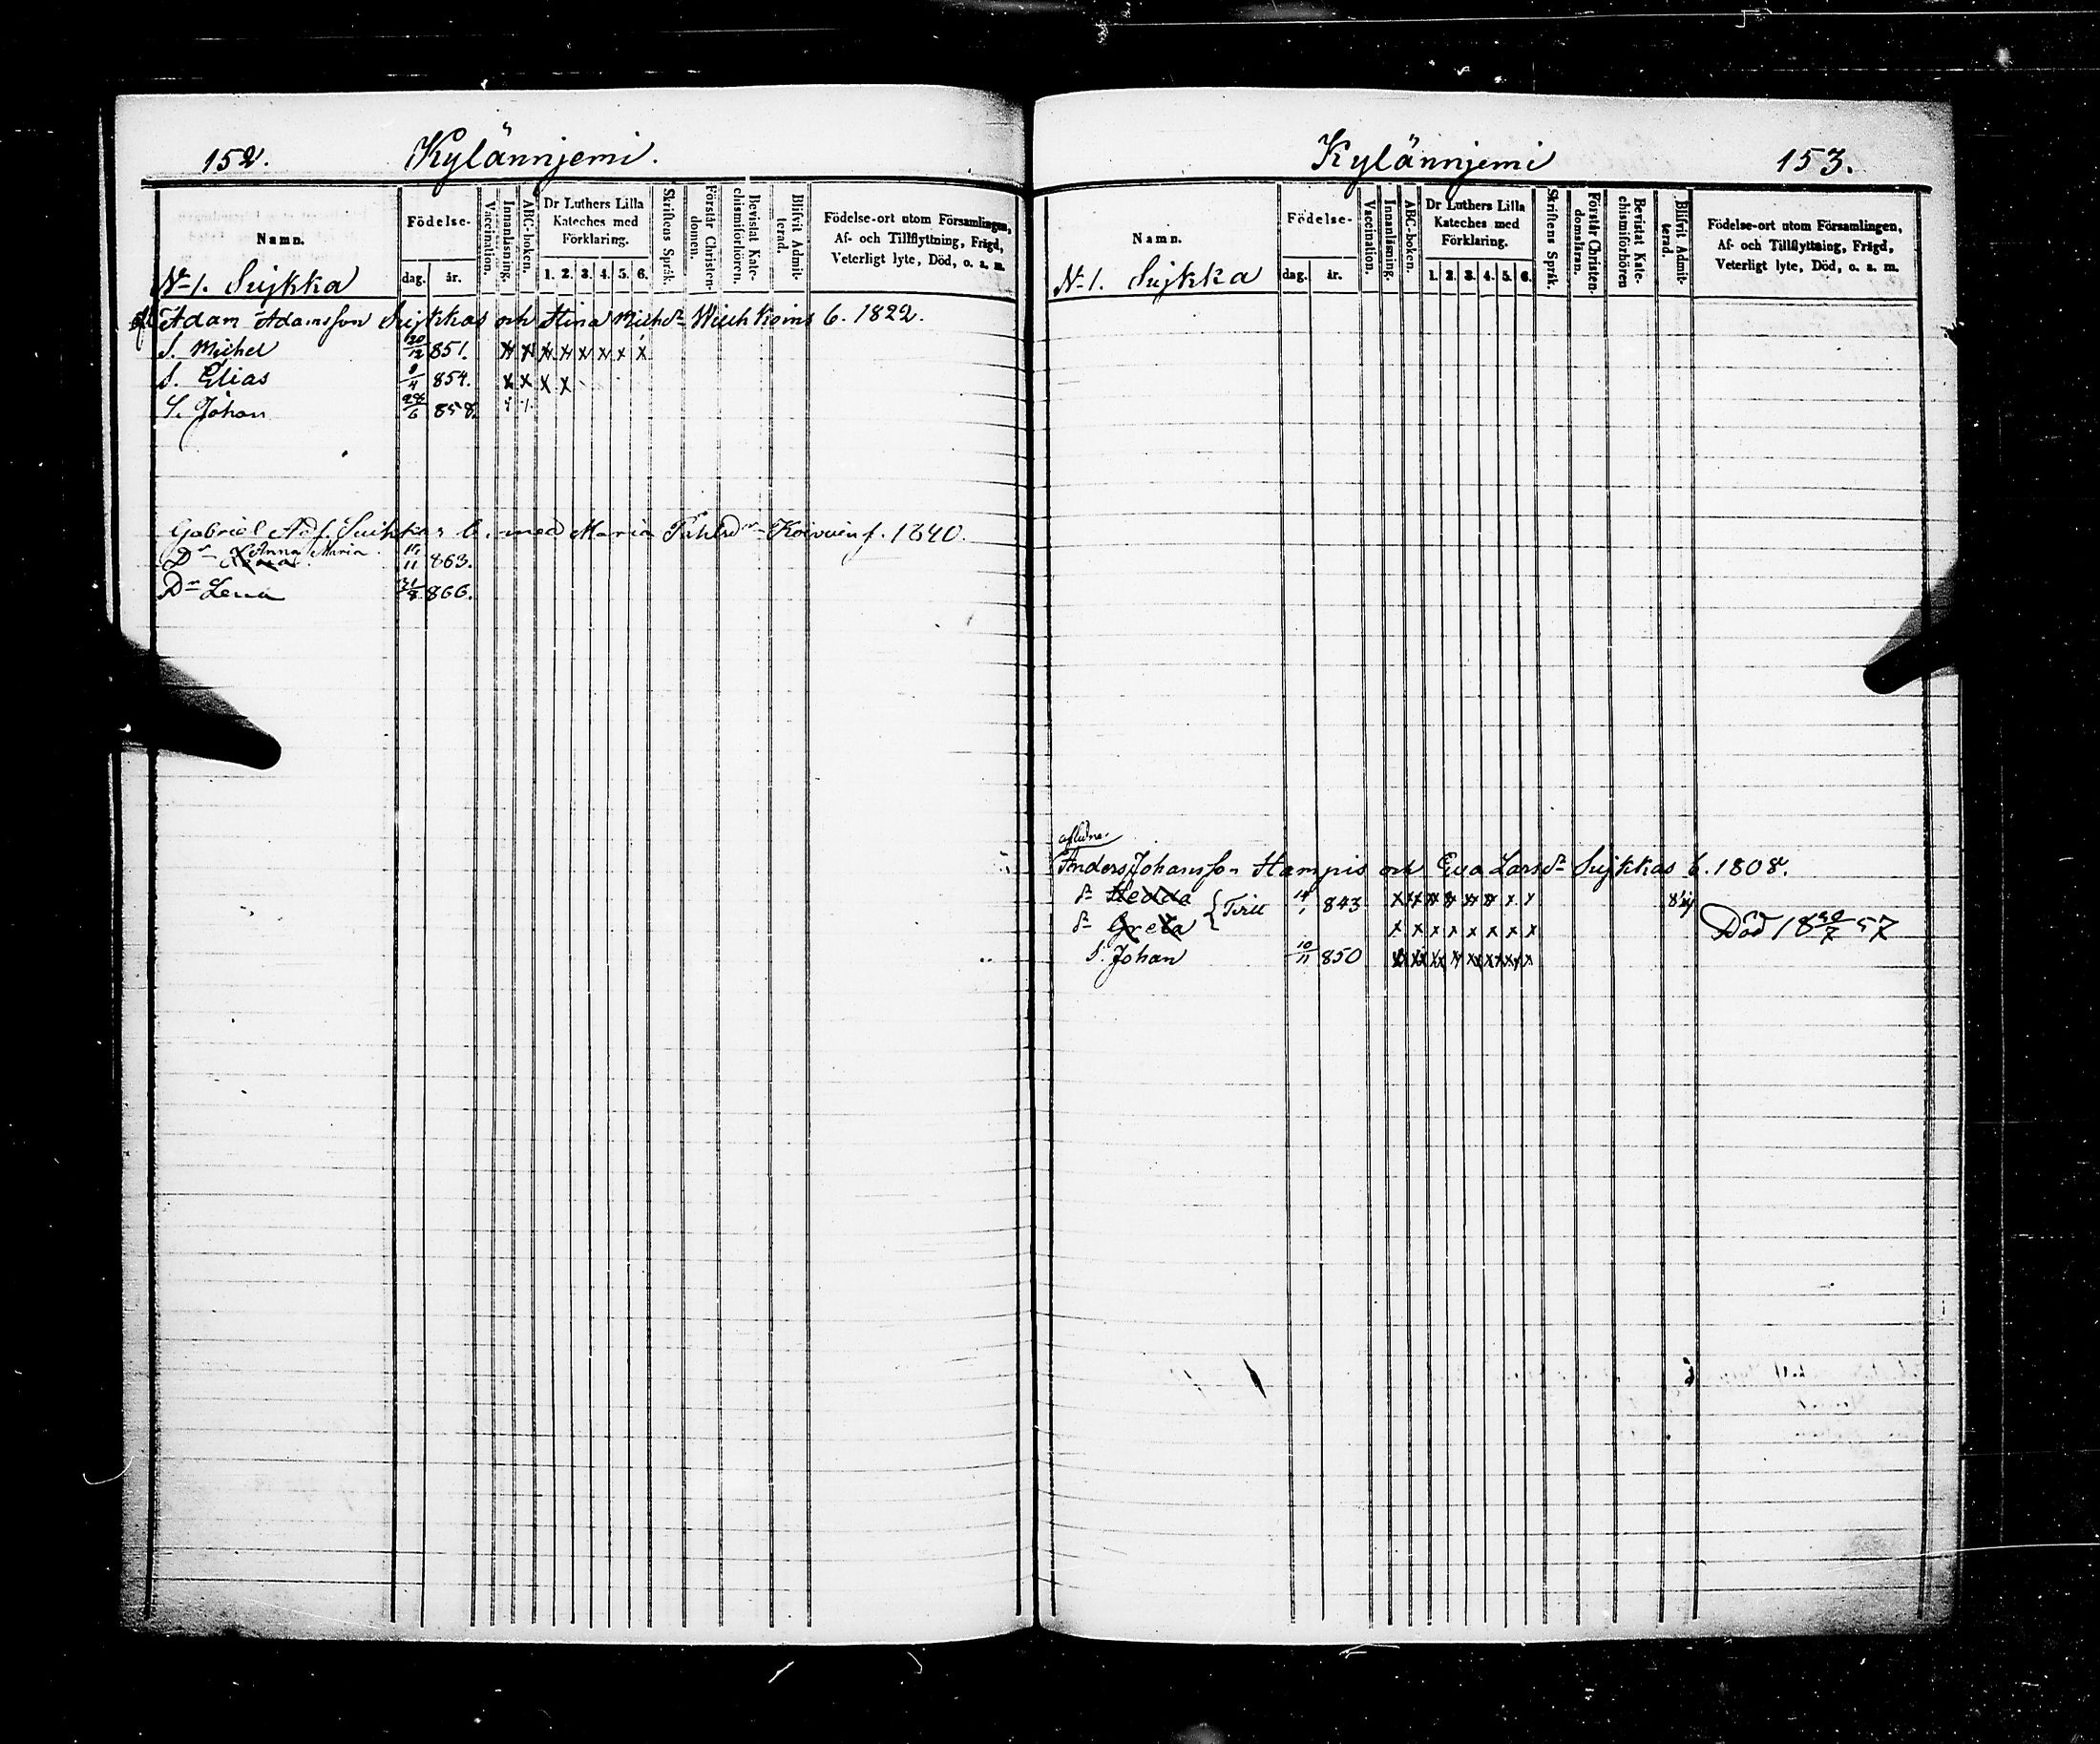 152. Kylännjemi.
Namn. Födelse- dag. år. Vaccination. Innanläsning. ABC-boken. Dr Luthers Lilla Kateches med Förklaring. 1. 2. 3. 4. 5. 6. Skriftens Språk. Förstår Christen-domen. Bevistat Kate-chismiförhören. Blifvit Admit-terad. Födelse-ort utom Församlingen, Af- och Tillflyttning, Frägd, Veterligt lyte, Död, o. s. m.
N 1. Sujkka
Adam Adamsson Sujkkas och Stina Michdr 6. 1822.
S. Michel 20/12 851. x x x x x x x x
S. Elias 9/4 854. x x x x
S. Johan 28/6 858.
Gabriel Ad.s. Suikkas b. med Maria 1840.
Dr Anna Maria 11 863.
Dr Lena 866.
Kylännjemi 153.
Namn. Födelse- dag. år. Vaccination. Innanläsning. ABC-boken. Dr Luthers Lilla Kateches med Förklaring. 1. 2. 3. 4. 5. 6. Skriftens Språk. Förstår Christen-domsläran. Bevistat Kate-chismiförhören Blifvit Admit-terad. Födelse-ort utom Församlingen, Af- och Tillflyttning, Frägd, Veterligt lyte, Död, o. s. m.
N 1. Sujkka
aflidne
Anders Johansson Hampis och Eva Larsdr Sujkkas b. 1808.
dr Hedda 14/1 843
dr Greta x x x x x x x x Död 18 57
S. Johan 10/11 850